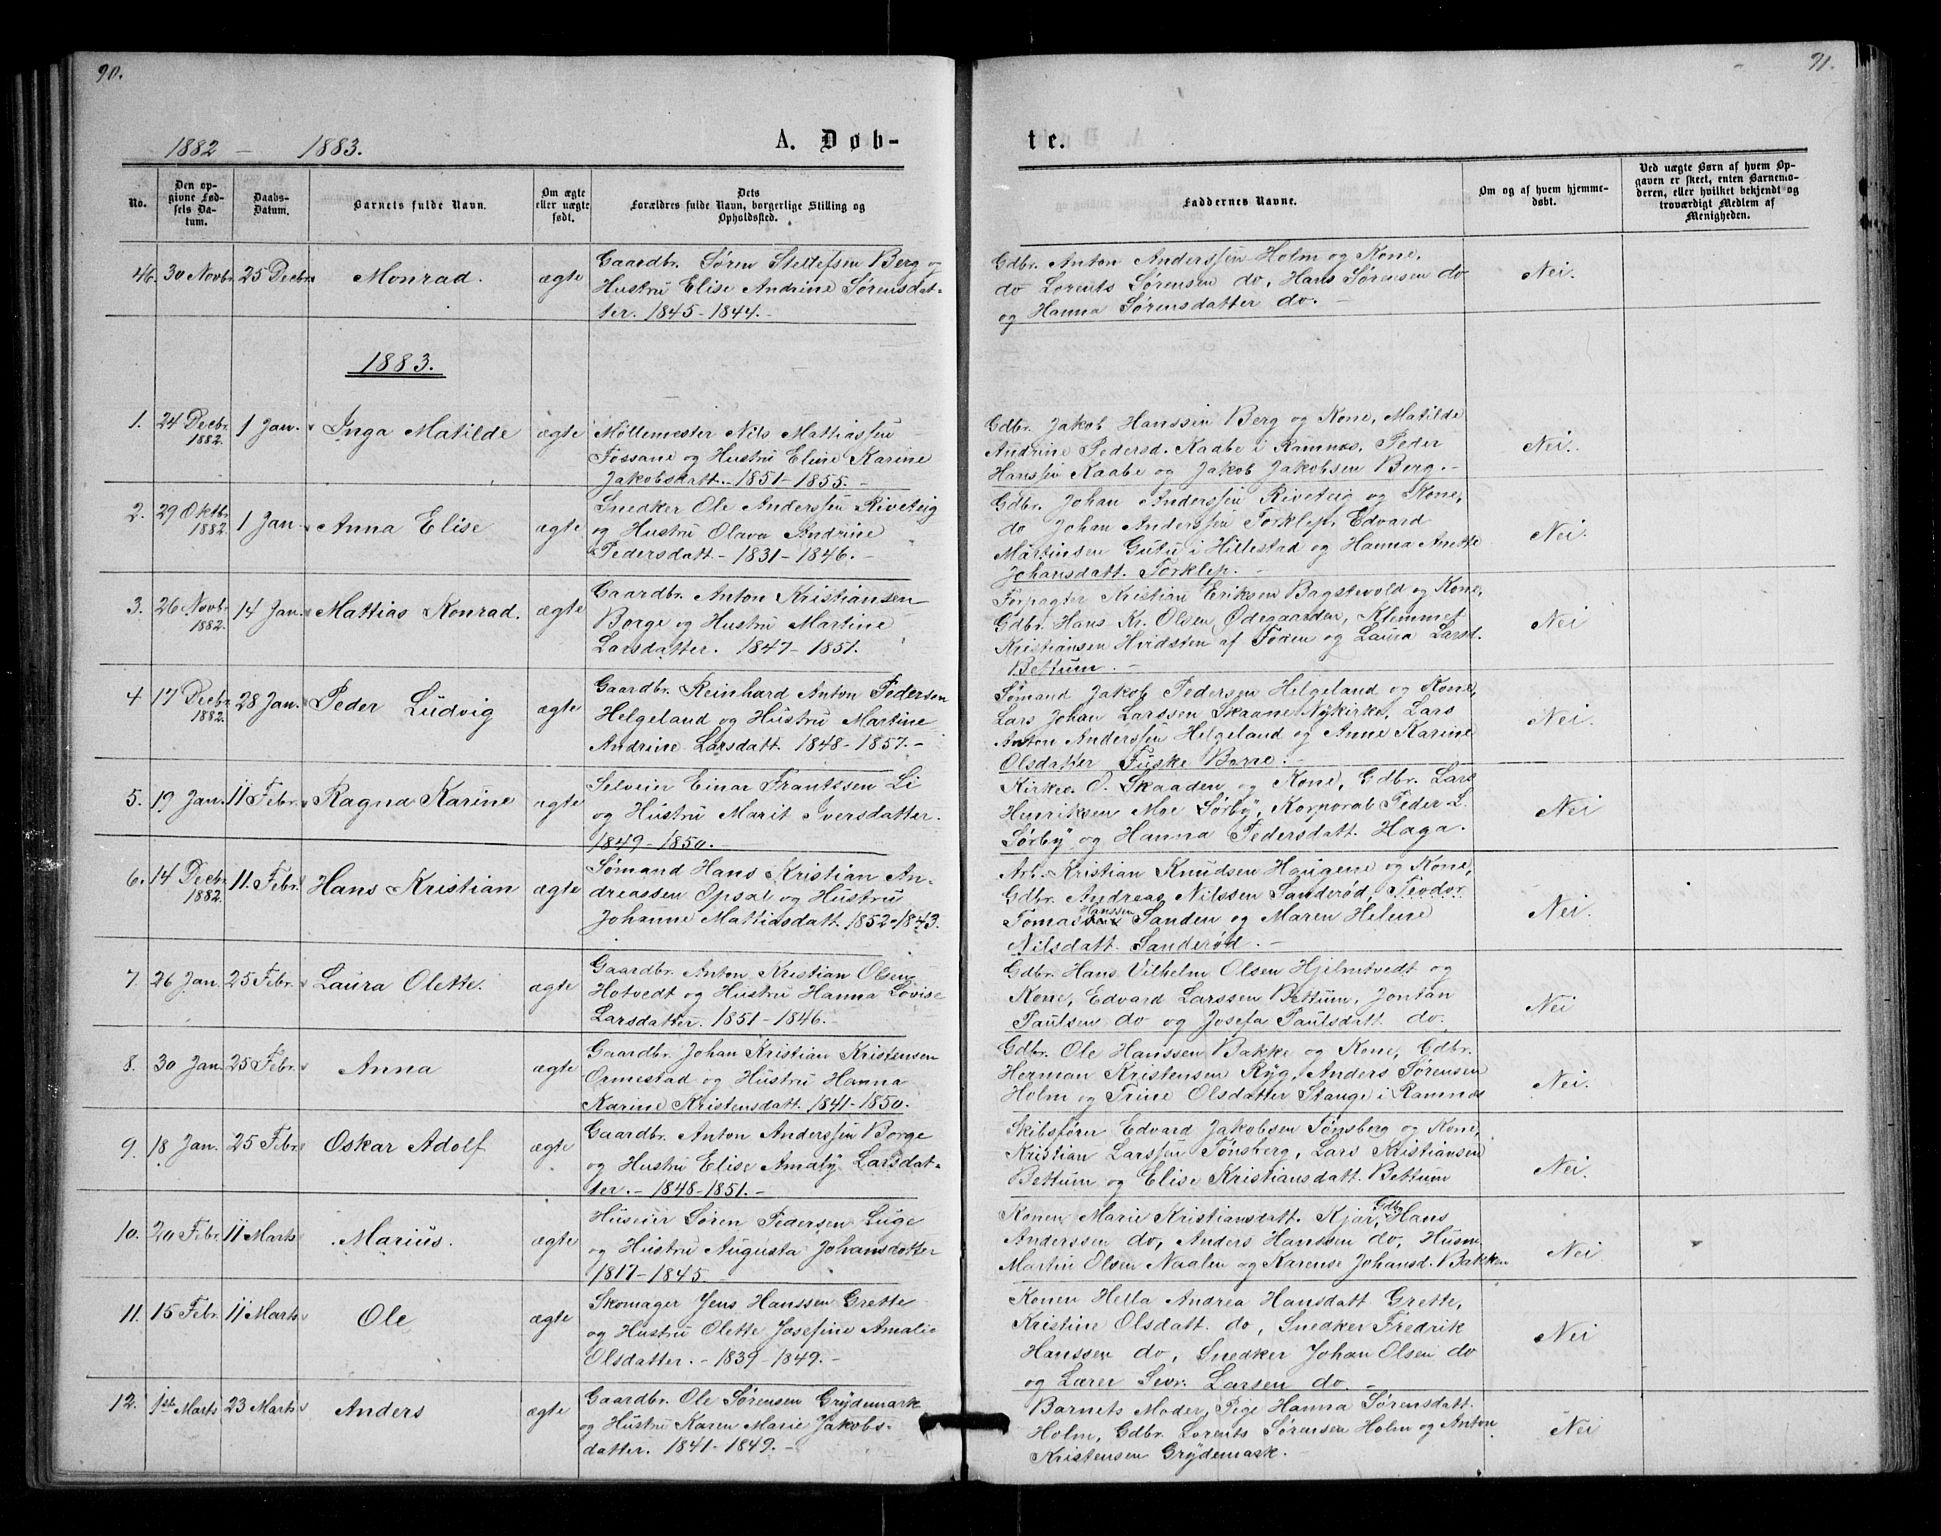 90.
1882 – 1883.
A. Døb-
No.
Den op-
givne Fød-
sels Da-
tum.
Daabs-
Datum.
Barnets fulde Navn.
Om ægte
eller uægte
født.
Dets
Forældres fulde Navn, borgerlige Stilling og
Opholdssted.
46. 30 Novbr 25 Decbr Monrad. ægte
Gaardbr. Søren Berg og
Hustru Elise Andrine Sørensdat-
ter. 1845 - 1844. -
1883.
1. 24 Decbr. 1882. 1 Jan. Inga Matilde ægte
Møllemester Nils Mathiassen
Fossane og Hustru Eline Karine
Jakobsdatt. - 1851 - 1855. -
2. 29 Oktbr. 1882. 1 Jan. Anna Elise ægte
Snedker Ole Anderssen Riveteig
og Hustru Olava Andrine
Pedersdatt - 1831 - 1846. -
3. 26 Novbr. 1882. 14 Jan. Mattias Konrad. ægte
Gaardbr. Anton Kristiansen
Borge og Hustru Martine
Larsdatter. 1847 - 1851.
4 17 Decbr. 1882. 28 Jan. Peder Ludvig ægte
Gaardbr. Reinhard Anton Pedersen
Helgeland og Hustru Martine
Andrine Larsdatt. 1848 - 1857. -
5. 19 Jan. 11 Febr. Ragna Karine ægte
Selveier Einar Frantssen Li
og Hustru Marit Iversdatter.
1849 - 1850.
6. 14 Decbr. 1882. 11. Febr. Hans Kristian ægte
Sømand Hans Kristian An-
dreassen Opsal og Hustru
Johanne Mattiasdatt. 1852 - 1843.
7. 26 Jan. 25 Febr. Laura Olette. ægte
Gaardbr. Anton Kristian Olsen
Hotvedt og Hustru Hanna Lovise
Larsdatter. 1851 - 1846. -
8. 30 Jan. 25 Febr. Anna ægte
Gaardbr. Johan Kristian Kristensen
Ormestad og Hustru Hanna
Karine Kristensdatt. 1841 - 1850.
9. 18 Jan. 25 Febr. Oskar Adolf ægte
Gaardbr. Anton Anderssen Borge
og Hustru Elise Amaly Larsdat-
ter. - 1848 - 1851. -
10. 20 Febr. 11 Marts Marius. ægte
Huseier Søren Pedersen Luge
og Hustru Augusta Johansdatter
1817 - 1845. -
11. 15 Febr. 11 Marts Ole ægte
Skomager Jens Hanssen Grette
og Hustru Olette Josefine Amalie
Olsdatter. - 1839 - 1849. -
12. 1ste Marts 23 Marts Anders ægte
Gaardbr. Ole Sørensen Grydemark
og Hustru Karen Marie Jakobs-
datter. 1841 - 1849. -
91.
te.
Faddernes Navne.
Om og af hvem hjemme-
døbt.
Ved uægte Børn af hvem Op-
gaven er skeet, enten Barnemo-
deren, eller hvilket bekjendt og
troværdigt Medlem af
Menigheden.
Gdbr. Anton Anderssen Holm og Kone,
do Lorents Sørensen do, Hans Sørensen do
og Hanna Sørensdatter do. -
Nei.
Gdbr. Jakob Hanssen Berg og Kone, Matilde
Andrine Pedersd. Kaabe i Ramnæs, Peder
Hanssen Kaabe og Jakob Jakobsen Berg. -
Nei.
Gdbr. Johan Anderssen Riveteig og Kone,
do Johan Anderssen Torklep, Edvard
Martinsen Gutu i Hillestad og Hanna Anette
Johansdatt. Torklep. -
Nei.
Forpagter Kristian Eriksen Bagstevold og Kone,
Gdbr. Hans Kr. Olsen Ødegaarden, Klemmet
Kristiansen Hvidsten af Foden og Laura Larsd.
Bettum. -
Nei
Sømand Jakob Pedersen Helgeland og Kone,
Lars Johan Larssen Skaane Nykirke, Lars
Anton Anderssen Helgeland og Anne Karine
Olsdatter Fuske Borre. -
Nei.
Kirkes. O. Skaaden og Kone, Gdbr. Lars
Henriksen Moe Sørby, Korporal Peder L.
Sørby og Hanna Pedersdatt. Haga.
Nei
Arb. Kristian Knudsen Haugene og Kone,
Gdbr. Andreas Nilssen Sanderød, Teodor
Tomas Hanssen Sanden og Maren Helene
Nilsdatt. Sanderød. -
Nei.
Gdbr. Hans Vilhelm Olsen Hjelmtvedt og
Kone, Edvard Larssen Bettum, Jontan
Paulsen do og Josefa Paulsdatt. do.
Nei
Gdbr. Ole Hanssen Bakke og Kone, Gdbr.
Herman Kristensen Ryg, Anders Sørensen
Holm og Trine Olsdatter Stange i Ramnæs
Nei.
Skibsfører Edvard Jakobsen Tønsberg og Kone,
Kristian Larssen Tønsberg, Lars Kristiansen
Bettum og Elise Kristiansdatt. Bettum
Nei.
Konen Marie Kristiansdatt. Kjær, Gdbr. Hans
Anderssen do, Anders Hanssen do, Husm.
Martin Olsen Naalen og Karense Johansd. Bakken
Nei
Konen Hella Andrea Hansdatt Grette,
Kristine Olsdatt. do, Snedker Fredrik
Hanssen do, Snedker Johan Olsen do
og Lærer Sevr. Larsen do. -
Nei
Barnets Moder, Pige Hanna Sørensdatt.
Holm, Gdbr. Lorents Sørensen Holm og Anton
Kristensen Grydemark. -
Nei